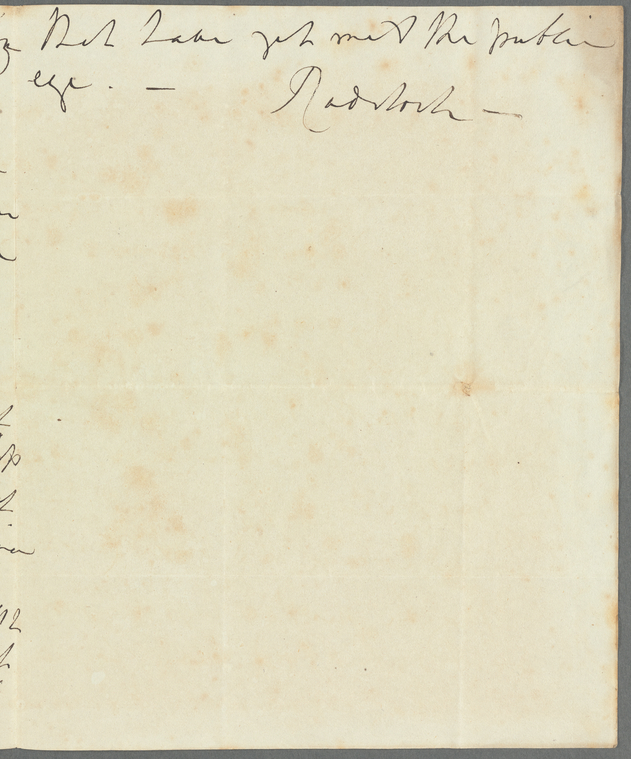 that have yet met the public
eye. —
Radstock —